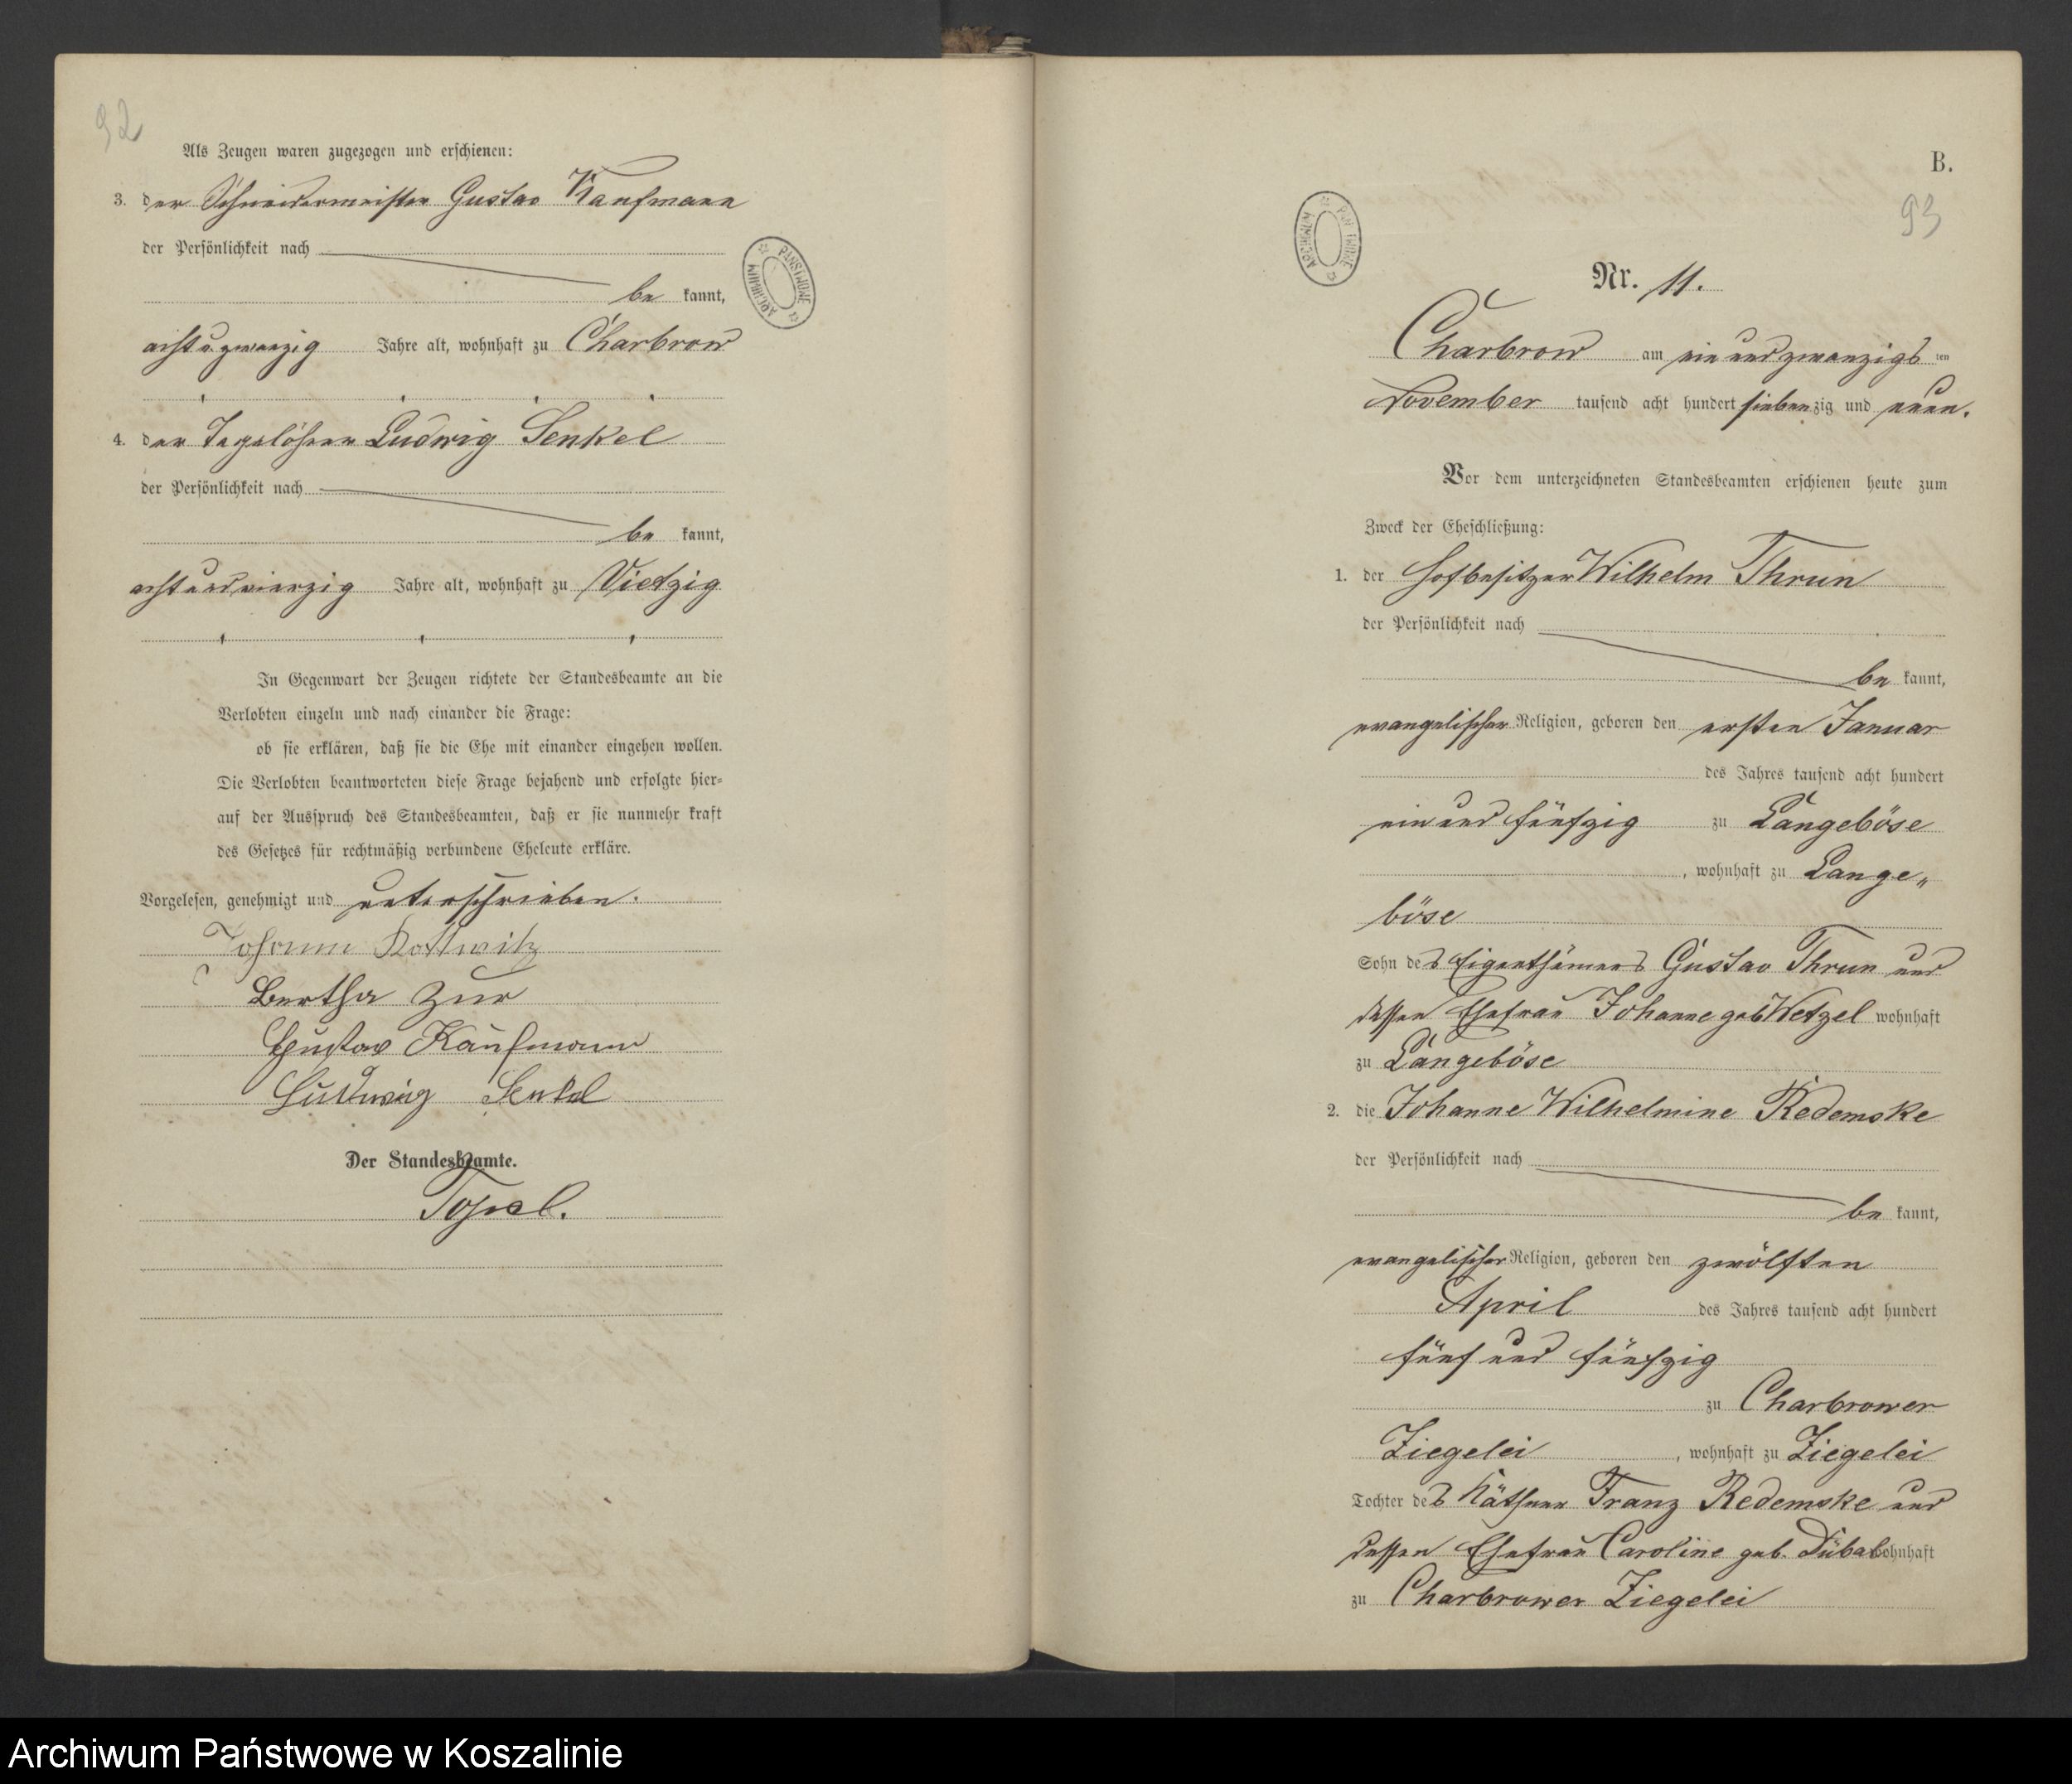 92
Als Zeugen waren zugezogen und erschienen:
3. der Schneidermeister Gustav Kaufmann
der Persönlichkeit nach
be kannt,
acht u. zwanzig Jahre alt, wohnhaft zu Charbrow
4. der Tagelöhner Ludwig Senkel
der Persönlichkeit nach
be kannt,
acht und vierzig Jahre alt, wohnhaft zu Vietzig
In Gegenwart der Zeugen richtete der Standesbeamte an die
Verlobten einzeln und nach einander die Frage:
ob sie erklären, daß sie die Ehe mit einander eingehen wollen.
Die Verlobten beantworteten diese Frage bejahend und erfolgte hier=
auf der Ausspruch des Standesbeamten, daß er sie nunmehr kraft
des Gesetzes für rechtmäßig verbundene Eheleute erkläre.
Vorgelesen, genehmigt und unterschrieben.
Johann Kottwitz
Bertha Zur
Gustav Kaufmann
Ludwig Senkel
Der Standesbeamte.
ARCHIWUM PAŃSTWOWE
B.
93
ARCHIWUM PAŃSTWOWE
Nr. 11.
Charbrow am ein und zwanzigs ten
November tausend acht hundert siebenzig und neun.
Vor dem unterzeichneten Standesbeamten erschienen heute zum
Zweck der Eheschließung:
1. der Hofbesitzer Wilhelm Thrun
der Persönlichkeit nach
be kannt,
evangelischer Religion, geboren den ersten Januar
des Jahres tausend acht hundert
ein und fünfzig zu Langeböse
, wohnhaft zu Lange„
böse
Sohn des Eigenthümers Gustav Thrun und
dessen Ehefrau Johanne geb Wetzel wohnhaft
zu Langeböse
2. die Johanne Wilhelmine Redemske
der Persönlichkeit nach
be kannt,
evangelischer Religion, geboren den zwölften
April des Jahres tausend acht hundert
fünf und fünfzig
zu Charbrower
Ziegelei , wohnhaft zu Ziegelei
Tochter des Käthner Franz Redemske und
dessen Ehefrau Caroline geb. Dübal wohnhaft
zu Charbrower Ziegelei
Archiwum Państwowe w Koszalinie